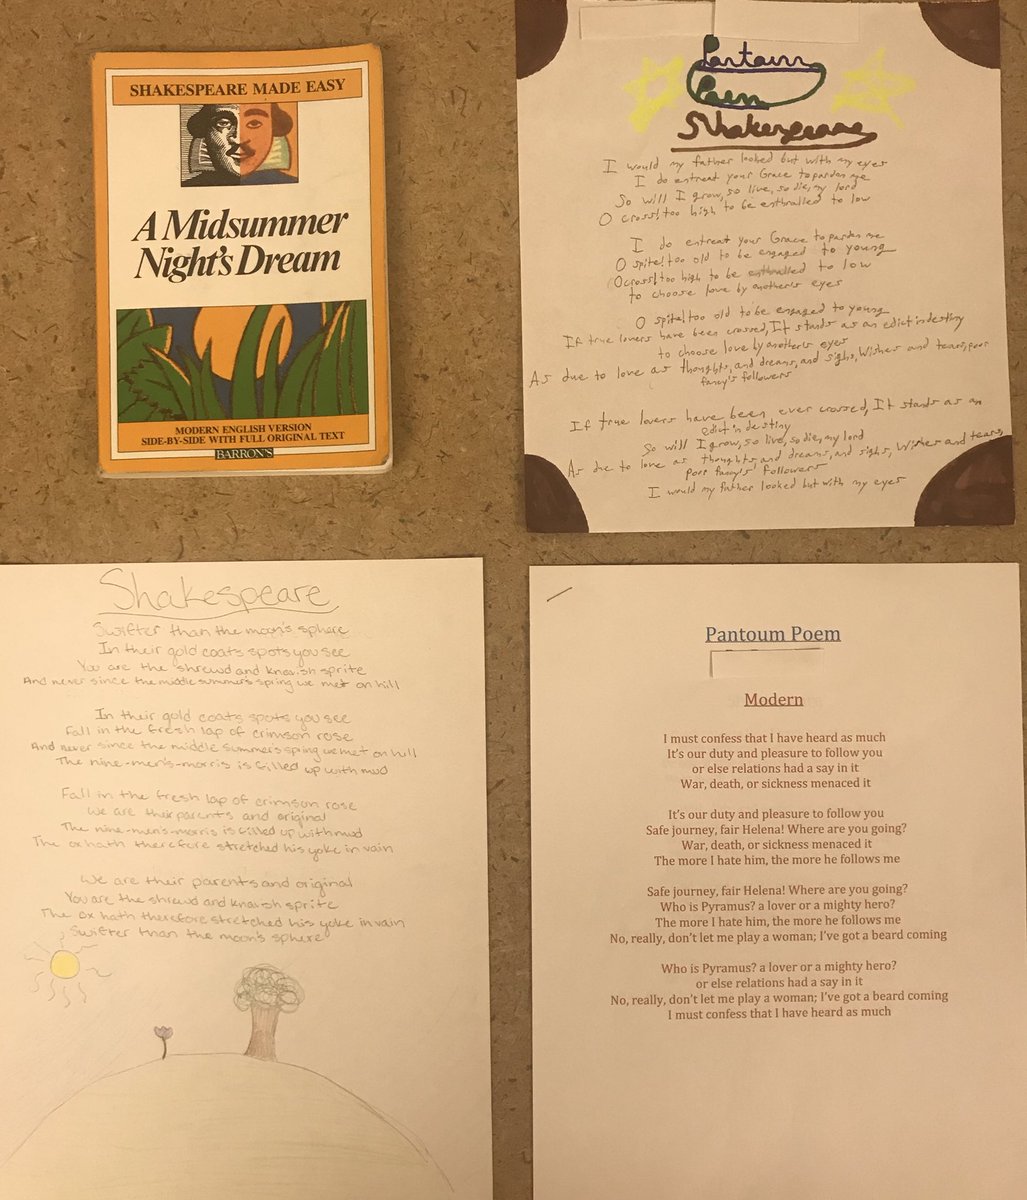 SHAKESPEARE MADE EASY
A Midsummer
Night's Dream
MODERN ENGLISH VERSION
SIDE-BY-SIDE WITH FULL ORIGINAL TEXT
BARRON'S
Pantoum
Poem
Shakespeare
I would my father looked but with my eyes
I do entreat your Grace to pardon me
So will I grow, so live, so die, my lord
O cross! too high to be enthralled to low
I do entreat your Grace to pardon me
O spite! too old to be engaged to young
O cross! too high to be enthralled to low
to choose love by another's eyes
O spite! too old to be engaged to young
If true lovers have been crossed, It stands as an edict in destiny
to choose love by another's eyes
As due to love as thoughts, and dreams, and sighs, Wishes and tears, poor
fancy's followers
If true lovers have been ever crossed, It stands as an
edict in destiny
So will I grow, so live, so die, my lord
As due to love as thoughts and dreams, and sighs, Wishes and tears,
poor fancy's followers
I would my father looked but with my eyes
Shakespeare
Swifter than the moon's sphere
In their gold coats spots you see
You are the shrewd and knavish sprite
And never since the middle summer's spring we met on hill
In their gold coats spots you see
Fall in the fresh lap of crimson rose
And never since the middle summers spring we met on hill
The nine-men's-morris is filled up with mud
Fall in the fresh lap of crimson rose
We are their parents and original
The nine-men's-morris is filled up with mud
The ox hath therefore stretched his yoke in vain
We are their parents and original
You are the shrewd and knavish sprite
The ox hath therefore stretched his yoke in vain
Swifter than the moon's sphere
Pantoum Poem
Modern
I must confess that I have heard as much
It's our duty and pleasure to follow you
or else relations had a say in it
War, death, or sickness menaced it
It's our duty and pleasure to follow you
Safe journey, fair Helena! Where are you going?
War, death, or sickness menaced it
The more I hate him, the more he follows me
Safe journey, fair Helena! Where are you going?
Who is Pyramus? a lover or a mighty hero?
The more I hate him, the more he follows me
No, really, don't let me play a woman; I've got a beard coming
Who is Pyramus? a lover or a mighty hero?
or else relations had a say in it
No, really, don't let me play a woman; I've got a beard coming
I must confess that I have heard as much